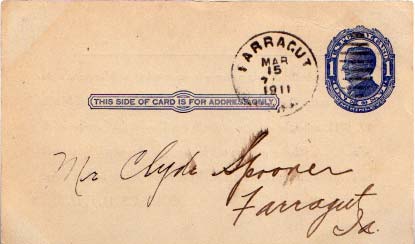 FARRAGUT
MAR
15
1911
1
THIS SIDE OF CARD IS FOR ADDRESS ONLY.
Mr Clyde Spooner
Farragut
Ia.